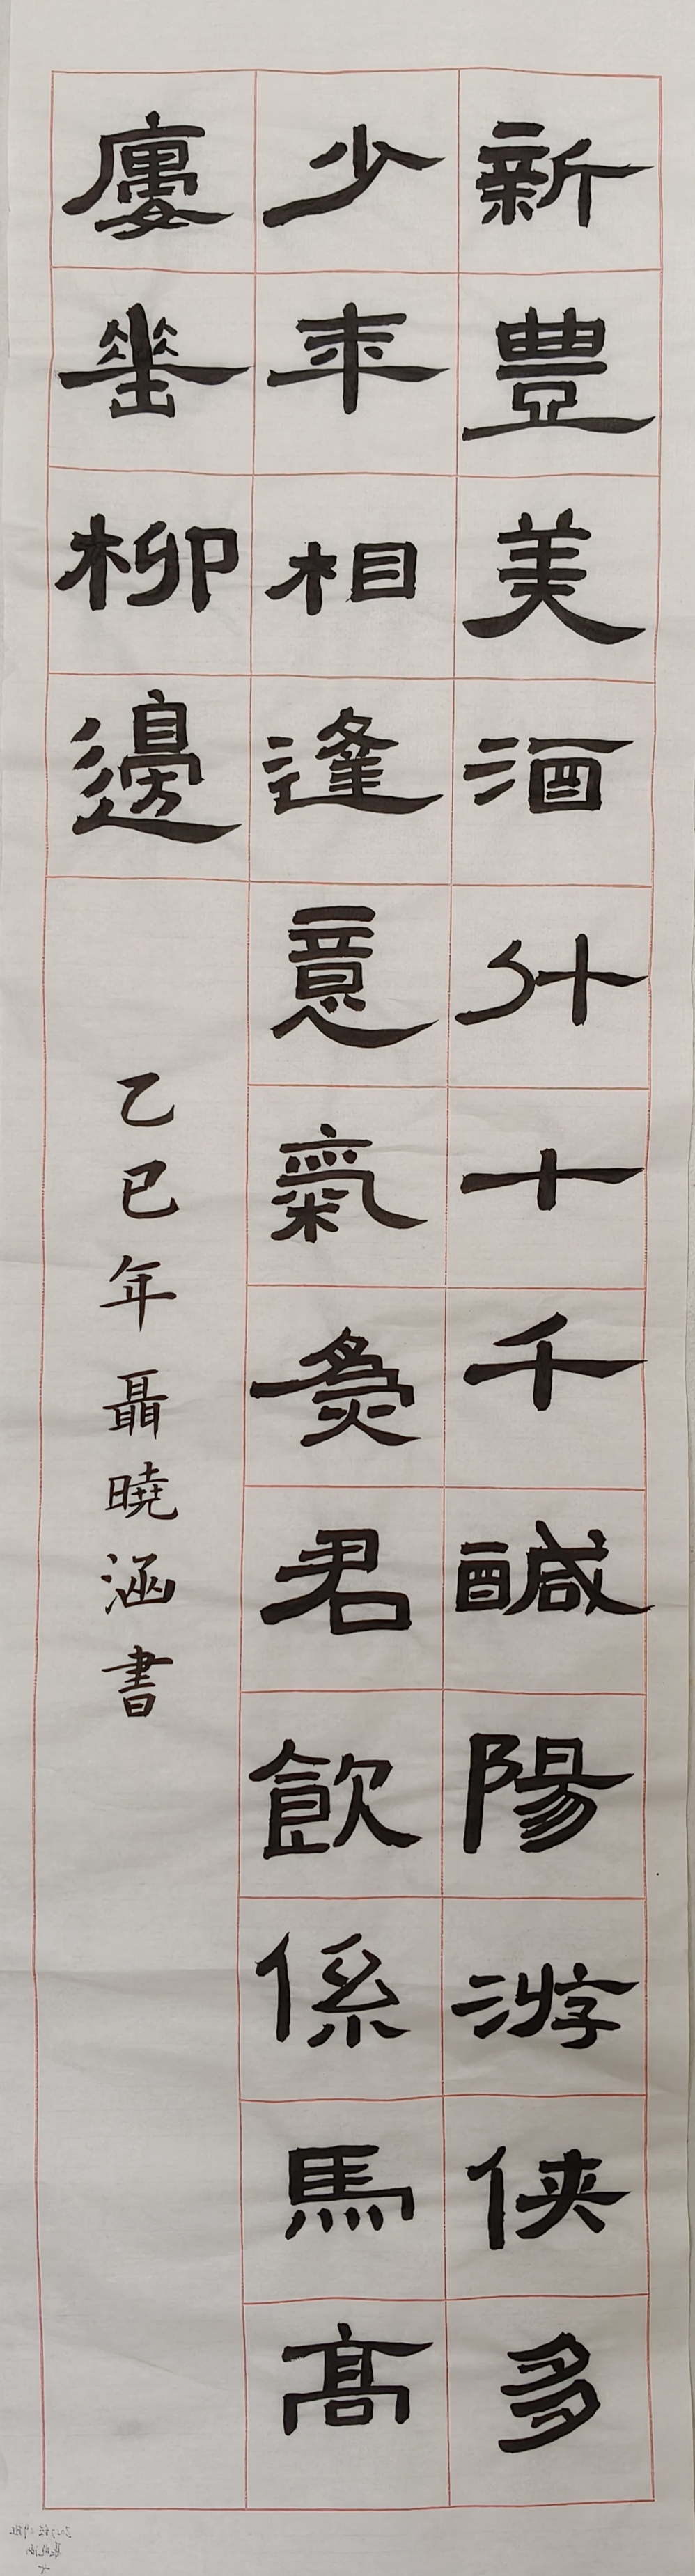 新豐美酒斗十千醎陽游俠多
少年相逢意氣為君飲係馬高
廔垂柳邊
乙巳年聶曉涵書